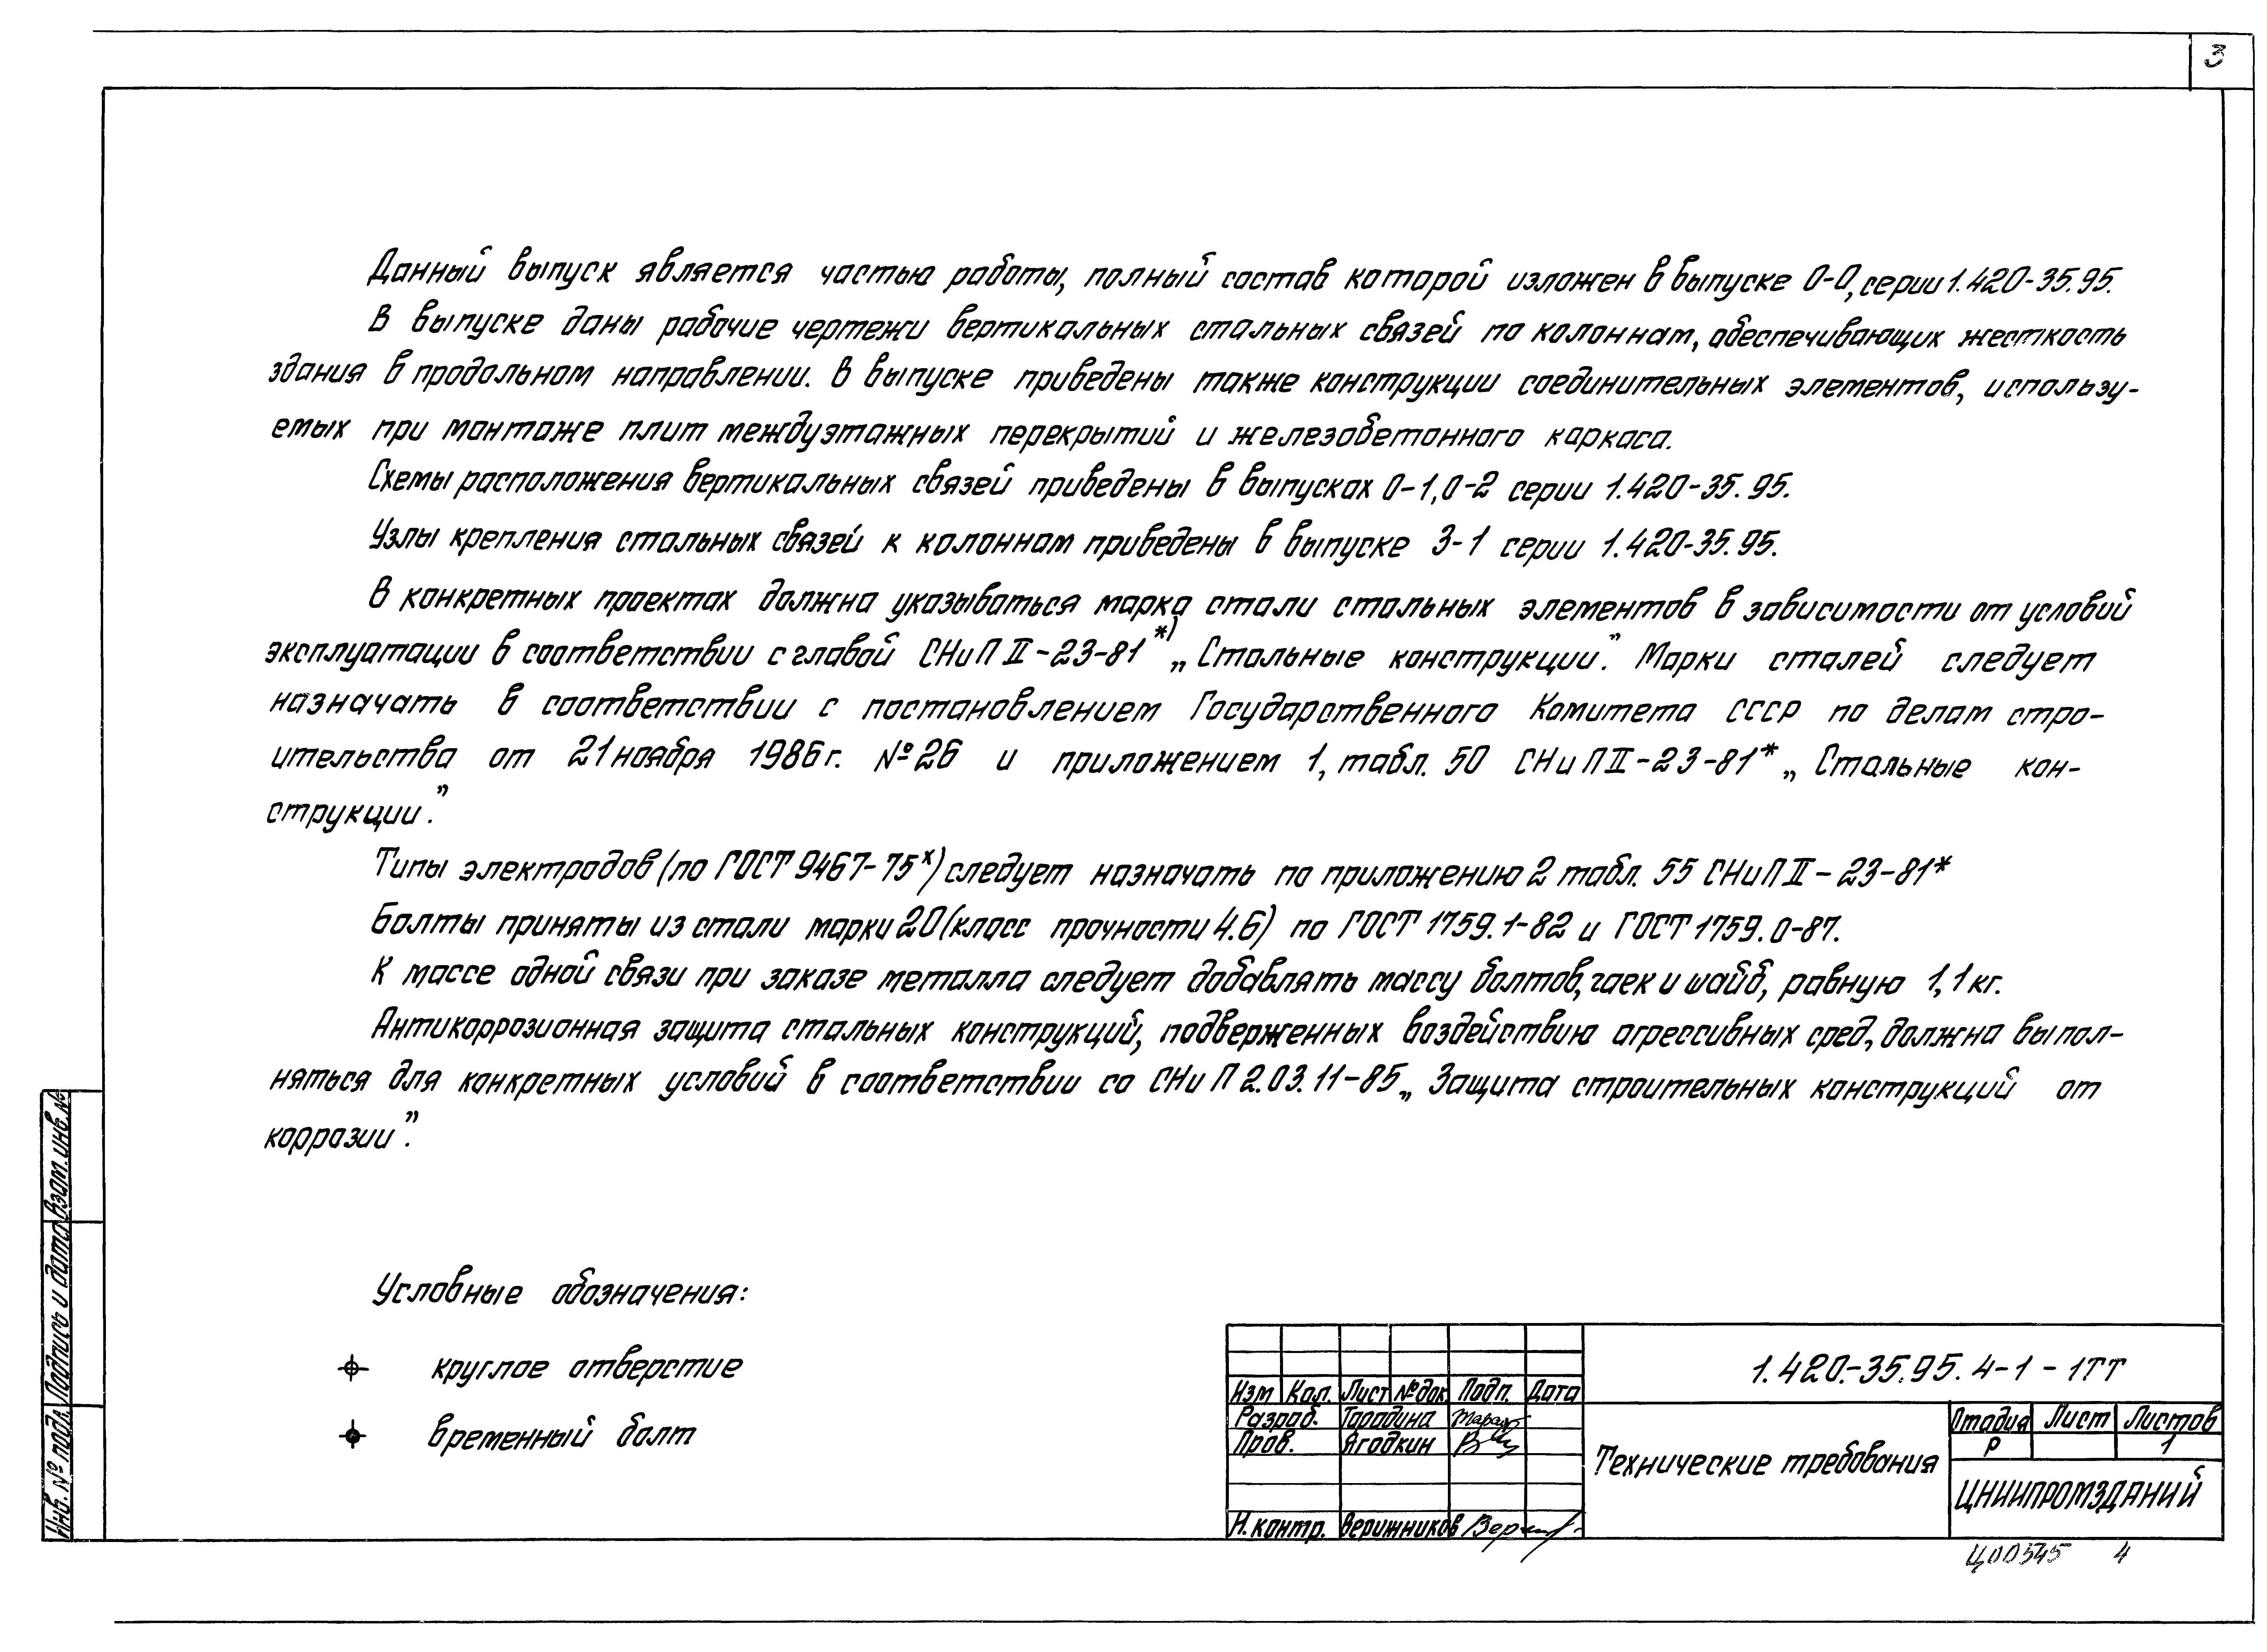 3
Данный выпуск является частью работы, полный состав которой изложен в выпуске 0-0, серии 1.420-35.95.
В выпуске даны рабочие чертежи вертикальных стальных связей по колоннам, обеспечивающих жесткость
здания в продольном направлении. В выпуске приведены также конструкции соединительных элементов, использу-
емых при монтаже плит междуэтажных перекрытий и железобетонного каркаса.
Схемы расположения вертикальных связей приведены в выпусках 0-1, 0-2 серии 1.420-35.95.
Узлы крепления стальных связей к колоннам приведены в выпуске 3-1 серии 1.420-35.95.
В конкретных проектах должна указываться марка стали стальных элементов в зависимости от условий
эксплуатации в соответствии с главой СНиП II-23-81*) „Стальные конструкции". Марки сталей следует
назначать в соответствии с постановлением Государственного Комитета СССР по делам стро-
ительства от 21 ноября 1986г. №26 и приложением 1, табл. 50 СНиП II-23-81* „Стальные кон-
струкции".
Типы электродов (по ГОСТ 9467-75х) следует назначать по приложению 2 табл. 55 СНиП II-23-81*
Болты приняты из стали марки 20 (класс прочности 4.6) по ГОСТ 1759.1-82 и ГОСТ 1759.0-87.
К массе одной связи при заказе металла следует добавлять массу болтов, гаек и шайб, равную 1,1 кг.
Антикоррозионная защита стальных конструкций, подверженных воздействию агрессивных сред, должна выпол-
няться для конкретных условий в соответствии со СНиП 2.03.11-85 „Защита строительных конструкций от
коррозии".
Условные обозначения:
круглое отверстие
временный болт
Взам. инв. №
Подпись и дата
Инв. № подл.
1.420-35.95.4-1-1ТТ
Изм Кол. Лист №док. Подп. Дата
Разраб. Тарадина
Пров. Ягодкин
Н. контр. Верижников
Технические требования
Стадия Лист Листов
Р 1
ЦНИИПРОМЗДАНИЙ
Ц00545 4